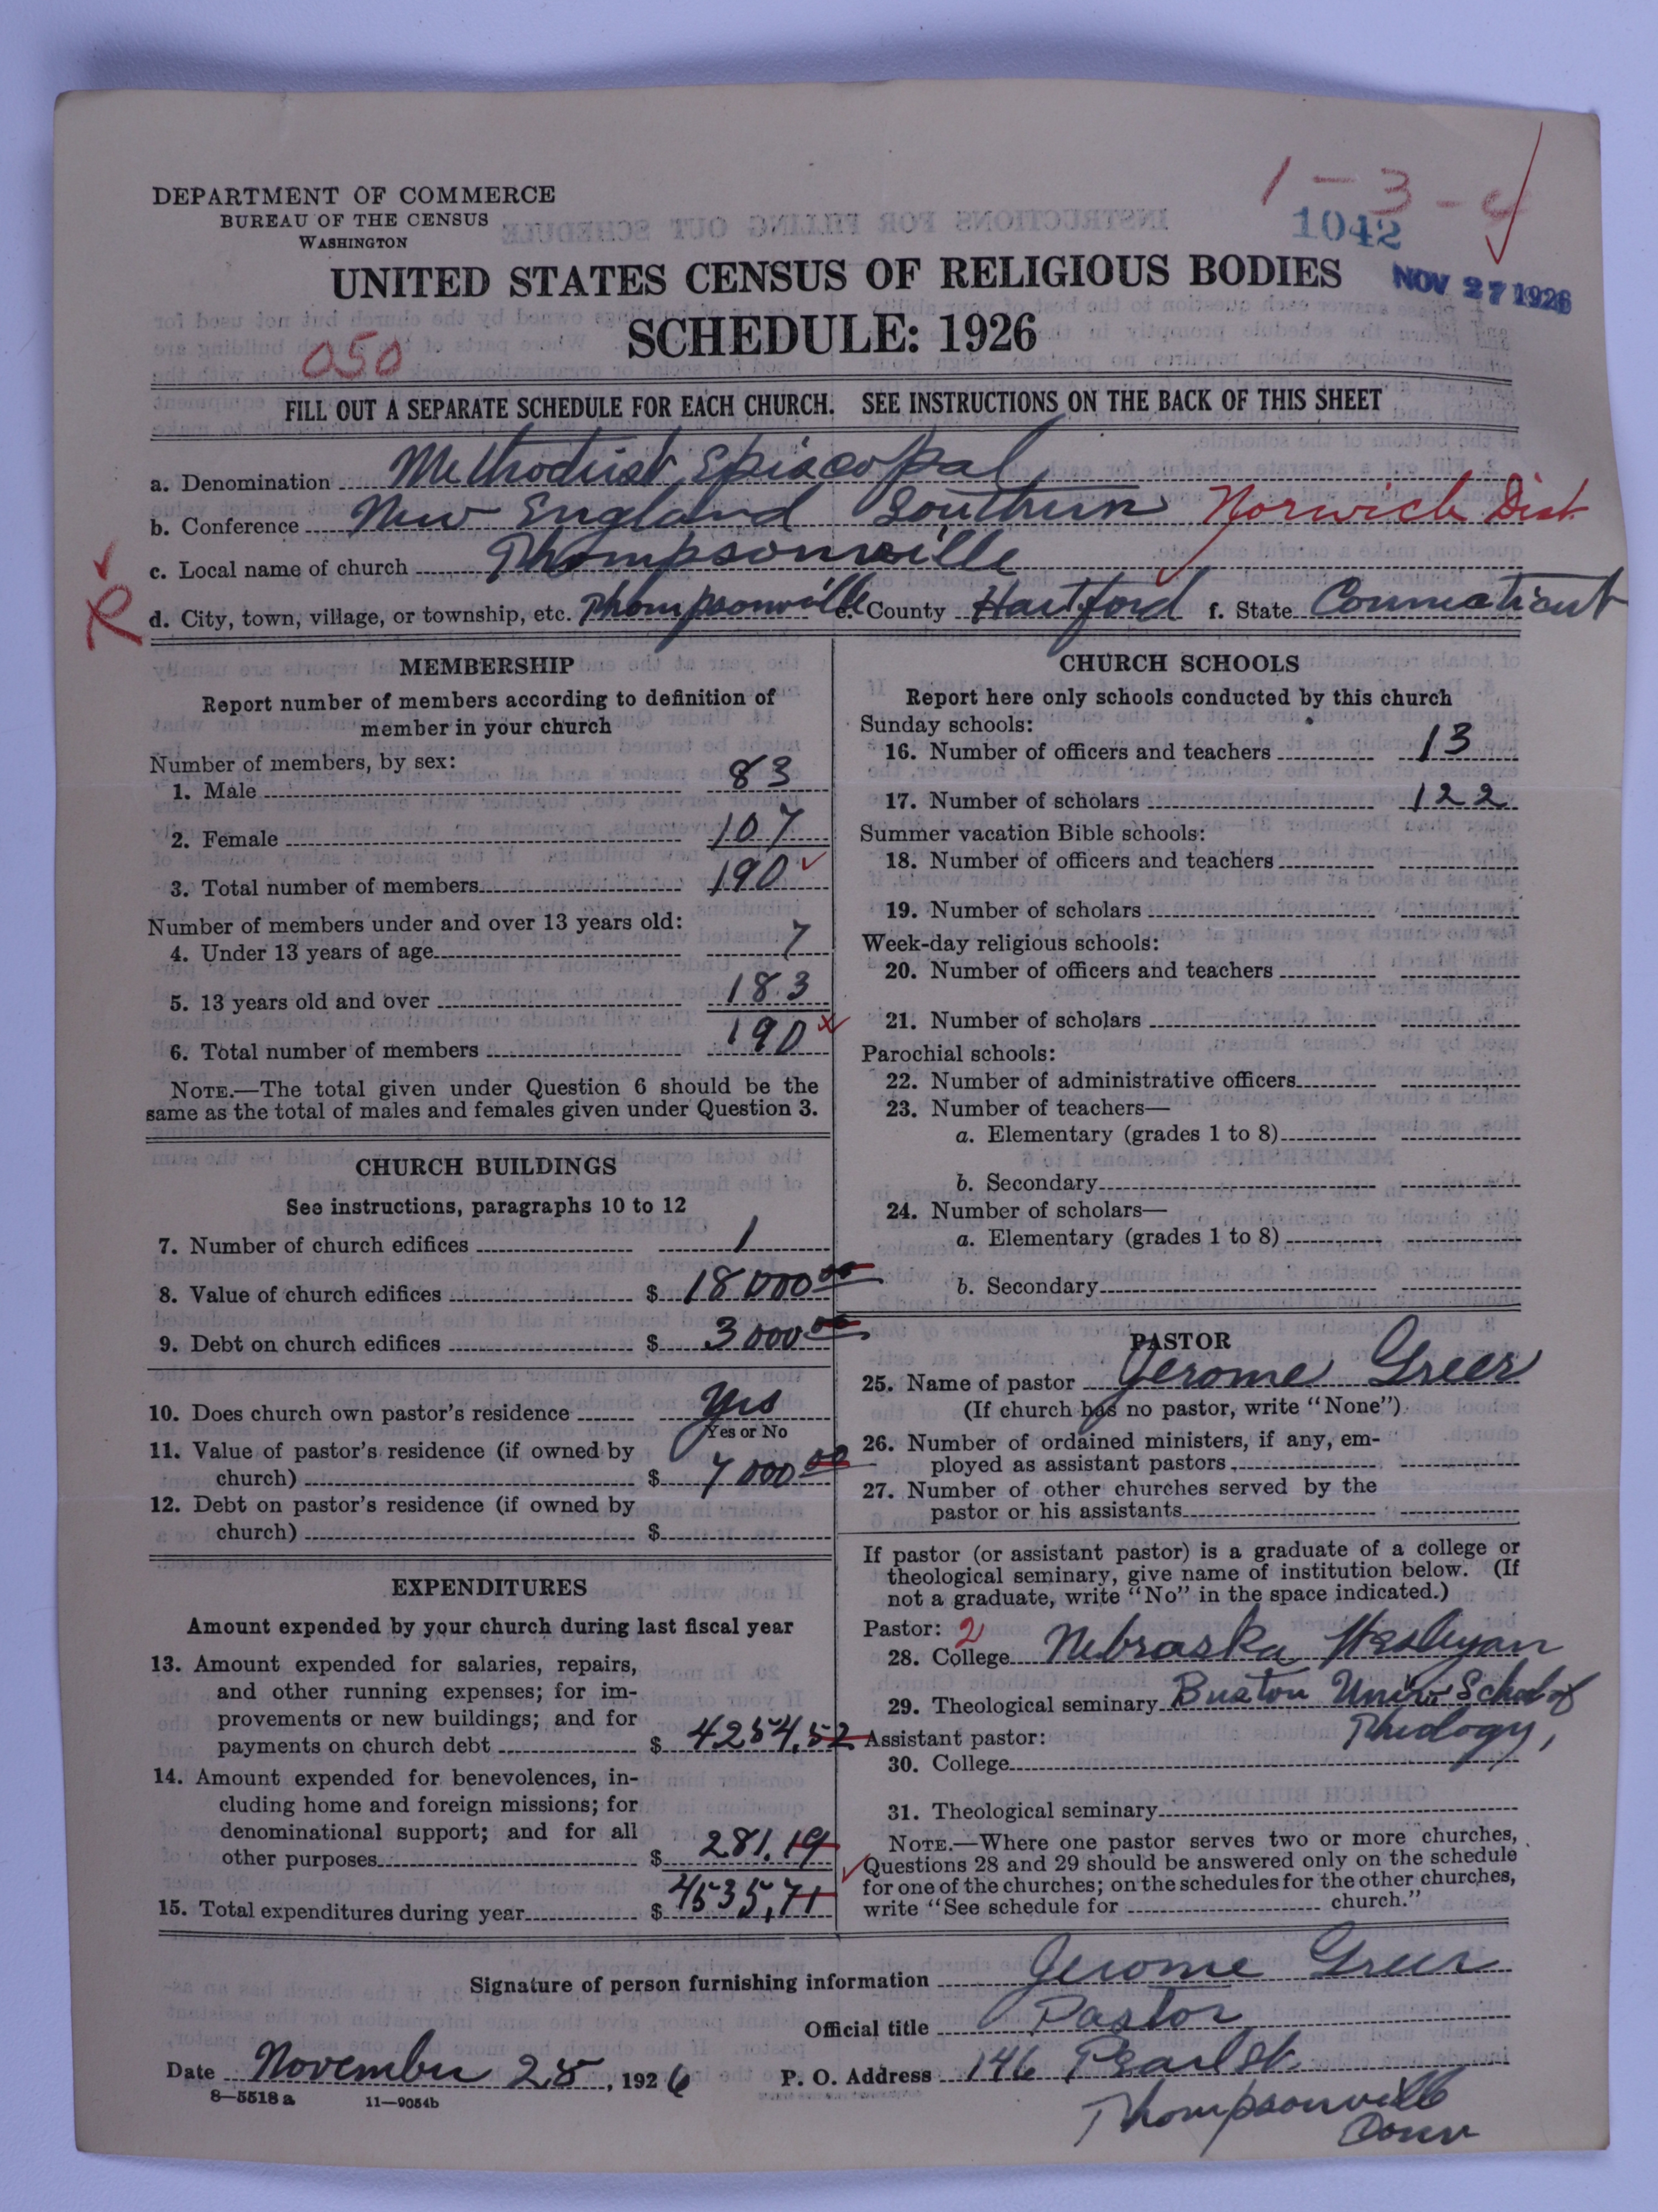 DEPARTMENT OF COMMERCE
BUREAU OF THE CENSUS
WASHINGTON
1 – 3 – 4
1042
NOV 27 1926
UNITED STATES CENSUS OF RELIGIOUS BODIES
SCHEDULE: 1926
050
FILL OUT A SEPARATE SCHEDULE FOR EACH CHURCH. SEE INSTRUCTIONS ON THE BACK OF THIS SHEET
a. Denomination Methodist Episcopal
b. Conference New England Southern Norwich Dist
c. Local name of church Thompsonville
R d. City, town, village, or township, etc. Thompsonville e. County Hartford f. State Connecticut
MEMBERSHIP
Report number of members according to definition of
member in your church
Number of members, by sex:
1. Male 83
2. Female 107
3. Total number of members 190
Number of members under and over 13 years old:
4. Under 13 years of age 7
5. 13 years old and over 183
6. Total number of members 190
NOTE.—The total given under Question 6 should be the
same as the total of males and females given under Question 3.
CHURCH BUILDINGS
See instructions, paragraphs 10 to 12
7. Number of church edifices 1
8. Value of church edifices $ 18000 00
9. Debt on church edifices $ 3000 00
10. Does church own pastor's residence Yes
Yes or No
11. Value of pastor's residence (if owned by
church) $ 7000 00
12. Debt on pastor's residence (if owned by
church) $
EXPENDITURES
Amount expended by your church during last fiscal year
13. Amount expended for salaries, repairs,
and other running expenses; for im-
provements or new buildings; and for
payments on church debt $ 4254.52
14. Amount expended for benevolences, in-
cluding home and foreign missions; for
denominational support; and for all
other purposes $ 281.19
15. Total expenditures during year $ 4535,71
CHURCH SCHOOLS
Report here only schools conducted by this church
Sunday schools:
16. Number of officers and teachers 13
17. Number of scholars 122
Summer vacation Bible schools:
18. Number of officers and teachers
19. Number of scholars
Week-day religious schools:
20. Number of officers and teachers
21. Number of scholars
Parochial schools:
22. Number of administrative officers
23. Number of teachers—
a. Elementary (grades 1 to 8)
b. Secondary
24. Number of scholars—
a. Elementary (grades 1 to 8)
b. Secondary
PASTOR
25. Name of pastor Jerome Greer
(If church has no pastor, write "None")
26. Number of ordained ministers, if any, em-
ployed as assistant pastors
27. Number of other churches served by the
pastor or his assistants
If pastor (or assistant pastor) is a graduate of a college or
theological seminary, give name of institution below. (If
not a graduate, write "No" in the space indicated.)
Pastor: 2
28. College Nebraska Wesleyan
29. Theological seminary Boston Univ. School of
Theology,
Assistant pastor:
30. College
31. Theological seminary
NOTE.—Where one pastor serves two or more churches,
Questions 28 and 29 should be answered only on the schedule
for one of the churches; on the schedules for the other churches,
write "See schedule for church."
Signature of person furnishing information Jerome Greer
Official title Pastor
Date November 25, 1926 P. O. Address 146 Pearl St.
Thompsonville
Conn
8—5518 a 11—9054b